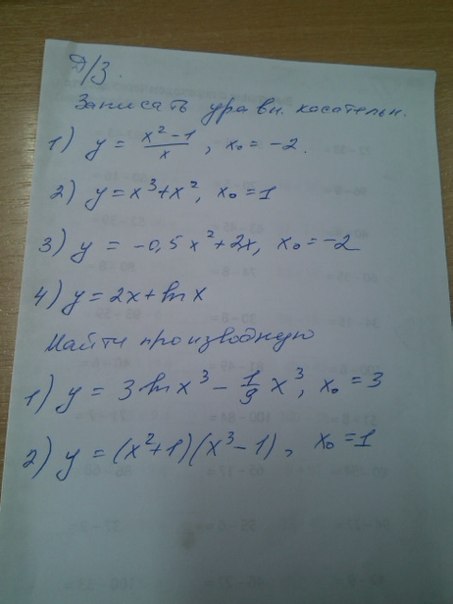 Д/З.
Записать уравн. касательн.
1) y = x²-1/x, x₀ = -2.
2) y = x³+x², x₀ = 1
3) y = -0,5x²+2x, x₀ = -2
4) y = 2x + ln x
Найти производную
1) y = 3 ln x³ - 1/9 x³, x₀ = 3
2) y = (x²+1)(x³-1), x₀ = 1